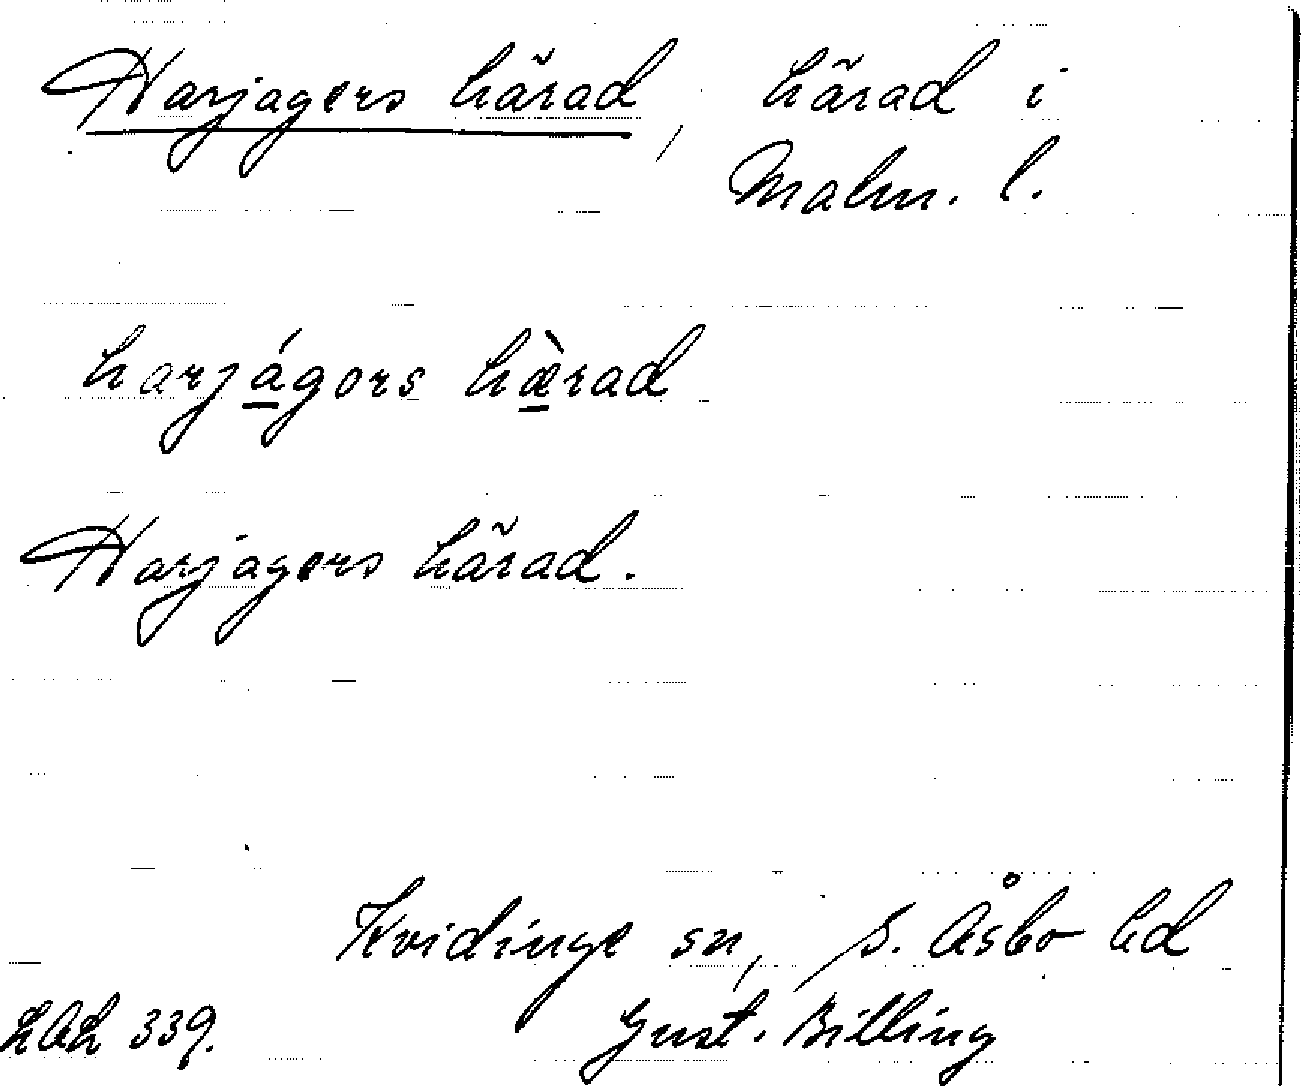 Harjagers härad, härad i
Malm. l.
harjágors hæ̀rad
Harjagers härad.
Kvidinge sn, S. Åsbo hd
LAL 339. Gust. Billing